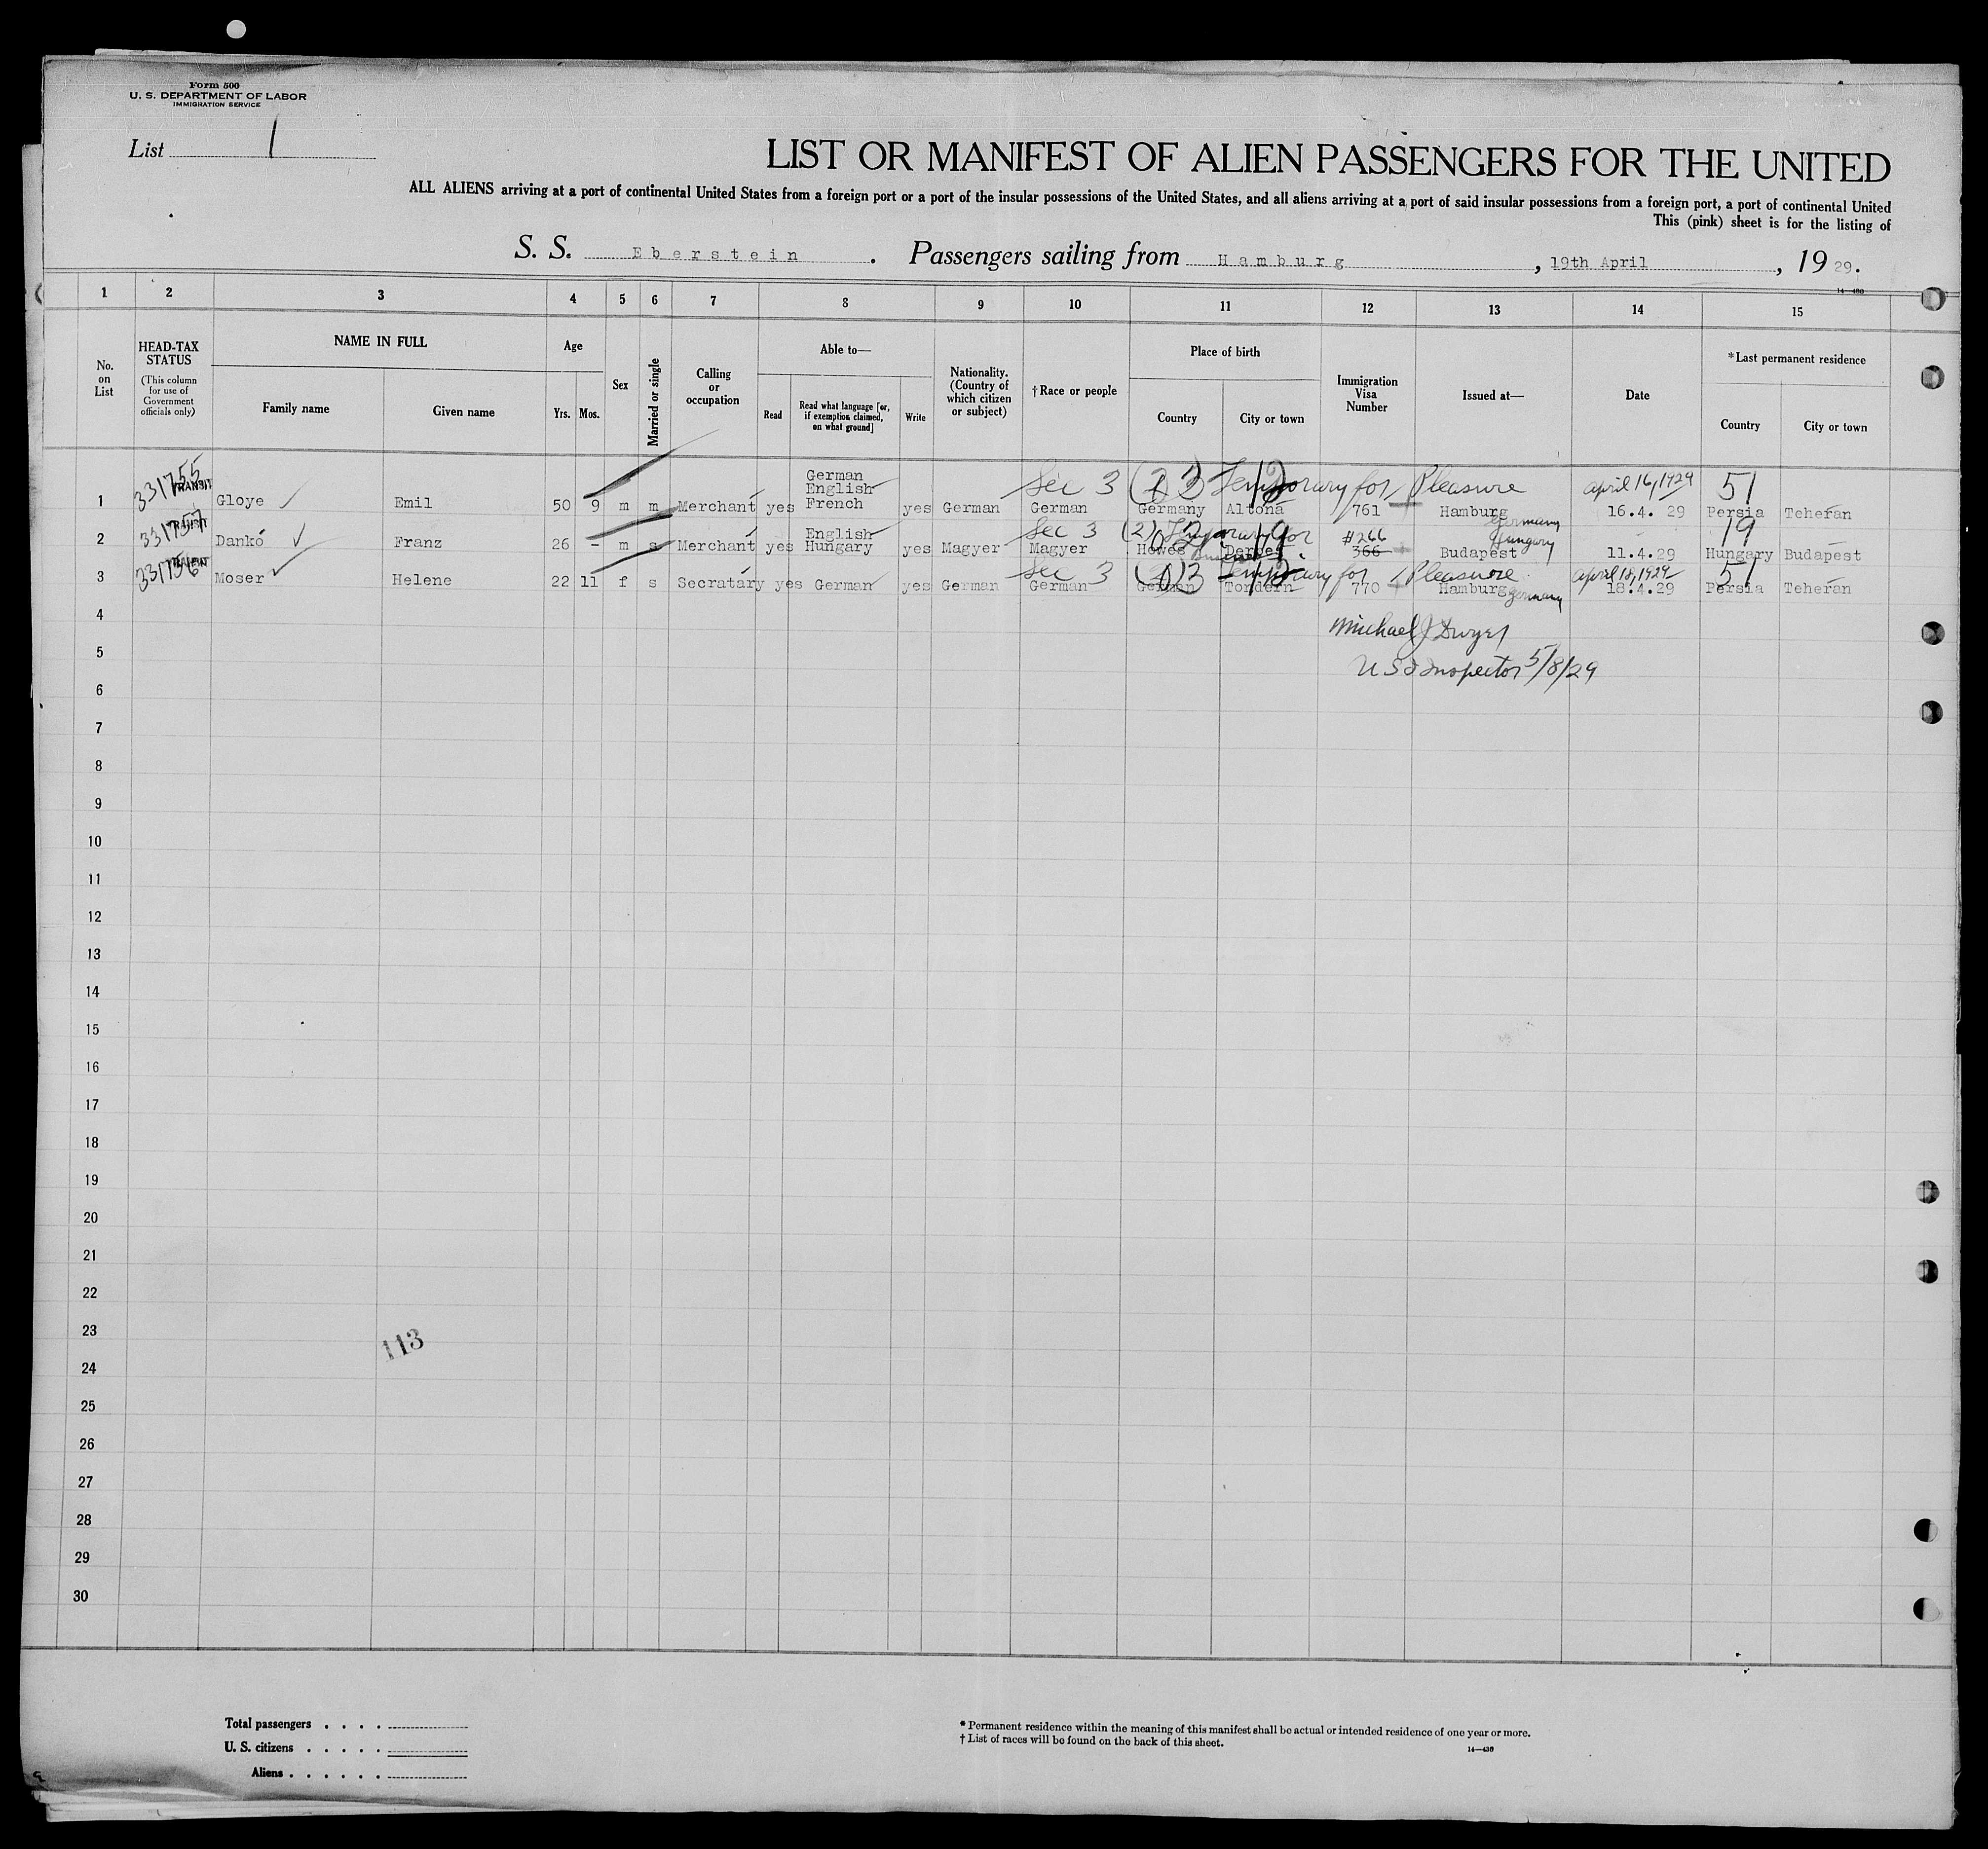 Form 500
U. S. DEPARTMENT OF LABOR
IMMIGRATION SERVICE
List 1
LIST OR MANIFEST OF ALIEN PASSENGERS FOR THE UNITED
ALL ALIENS arriving at a port of continental United States from a foreign port or a port of the insular possessions of the United States, and all aliens arriving at a port of said insular possessions from a foreign port, a port of continental United
This (pink) sheet is for the listing of
S. S. Eberstein . Passengers sailing from Hamburg , 19th April , 19 29.
1 2 3 4 5 6 7 8 9 10 11 12 13 14 15
No. on List
HEAD-TAX STATUS
(This column for use of Government officials only)
NAME IN FULL
Family name Given name
Age
Yrs. Mos.
Sex
Married or single
Calling or occupation
Able to—
Read
Read what language [or, if exemption claimed, on what ground]
Write
Nationality. (Country of which citizen or subject)
†Race or people
Place of birth
Country City or town
Immigration Visa Number
Issued at—
Date
*Last permanent residence
Country City or town
Sec 3 Temporary for Pleasure April 16, 1929 51
1 331755 TRANSIT Gloye Emil 50 9 m m Merchant yes German English French yes German German Germany Altona 761 Hamburg Germany 16.4. 29 Persia Teheran
Sec 3 (2) Temporary for #266 19
2 331757 TRANSIT Dankó Franz 26 - m s Merchant yes English Hungary yes Magyer Magyer 366 Budapest Hungary 11.4.29 Hungary Budapest
Sec 3 Temporary for Pleasure April 18, 1929 51
3 331756 TRANSIT Moser Helene 22 11 f s Secratary yes German yes German German German Tondern 770 Hamburg Germany 18.4.29 Persia Teheran
4 Michael J Dwyer
5 U S I Inspector 5/8/29
6
7
8
9
10
11
12
13
14
15
16
17
18
19
20
21
22
23
113
24
25
26
27
28
29
30
Total passengers . . . .
U. S. citizens . . . . .
Aliens . . . . . .
* Permanent residence within the meaning of this manifest shall be actual or intended residence of one year or more.
† List of races will be found on the back of this sheet.
14—430